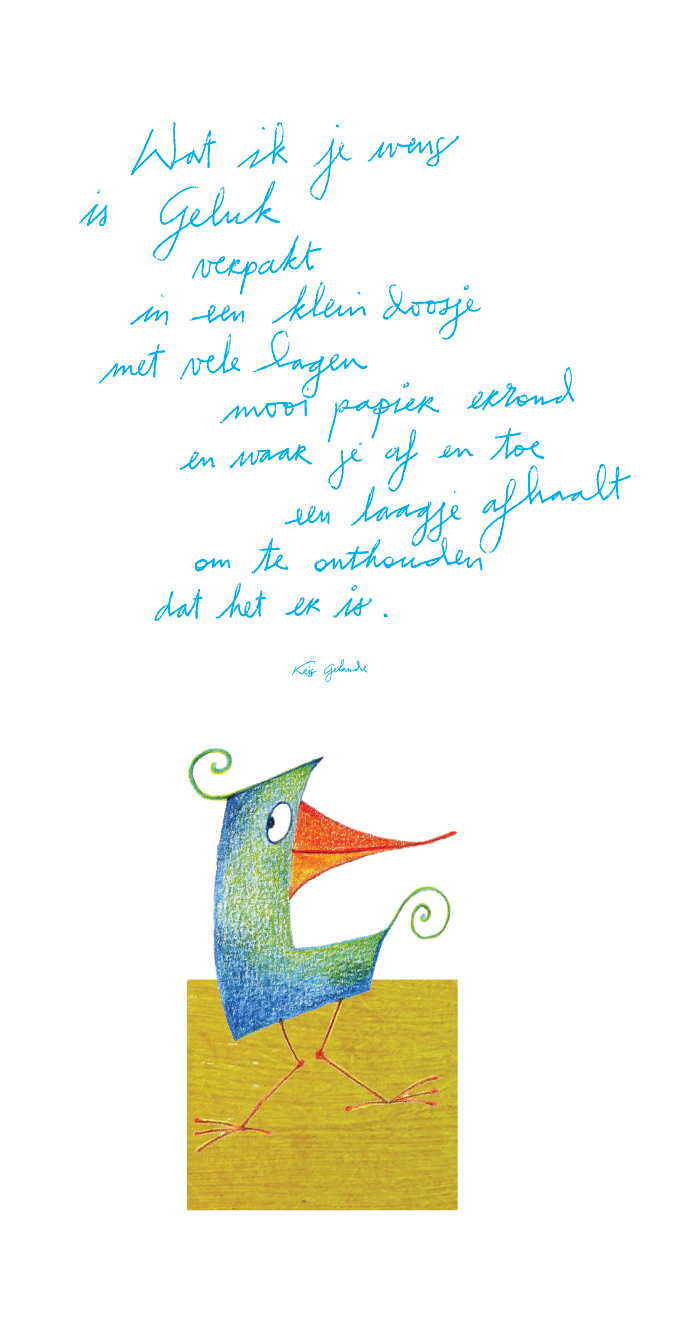 Wat ik je wens
is Geluk
verpakt
in een klein doosje
met vele lagen
mooi papier errond
en waar je af en toe
een laagje afhaalt
om te onthouden
dat het er is.
Kris Gelaude